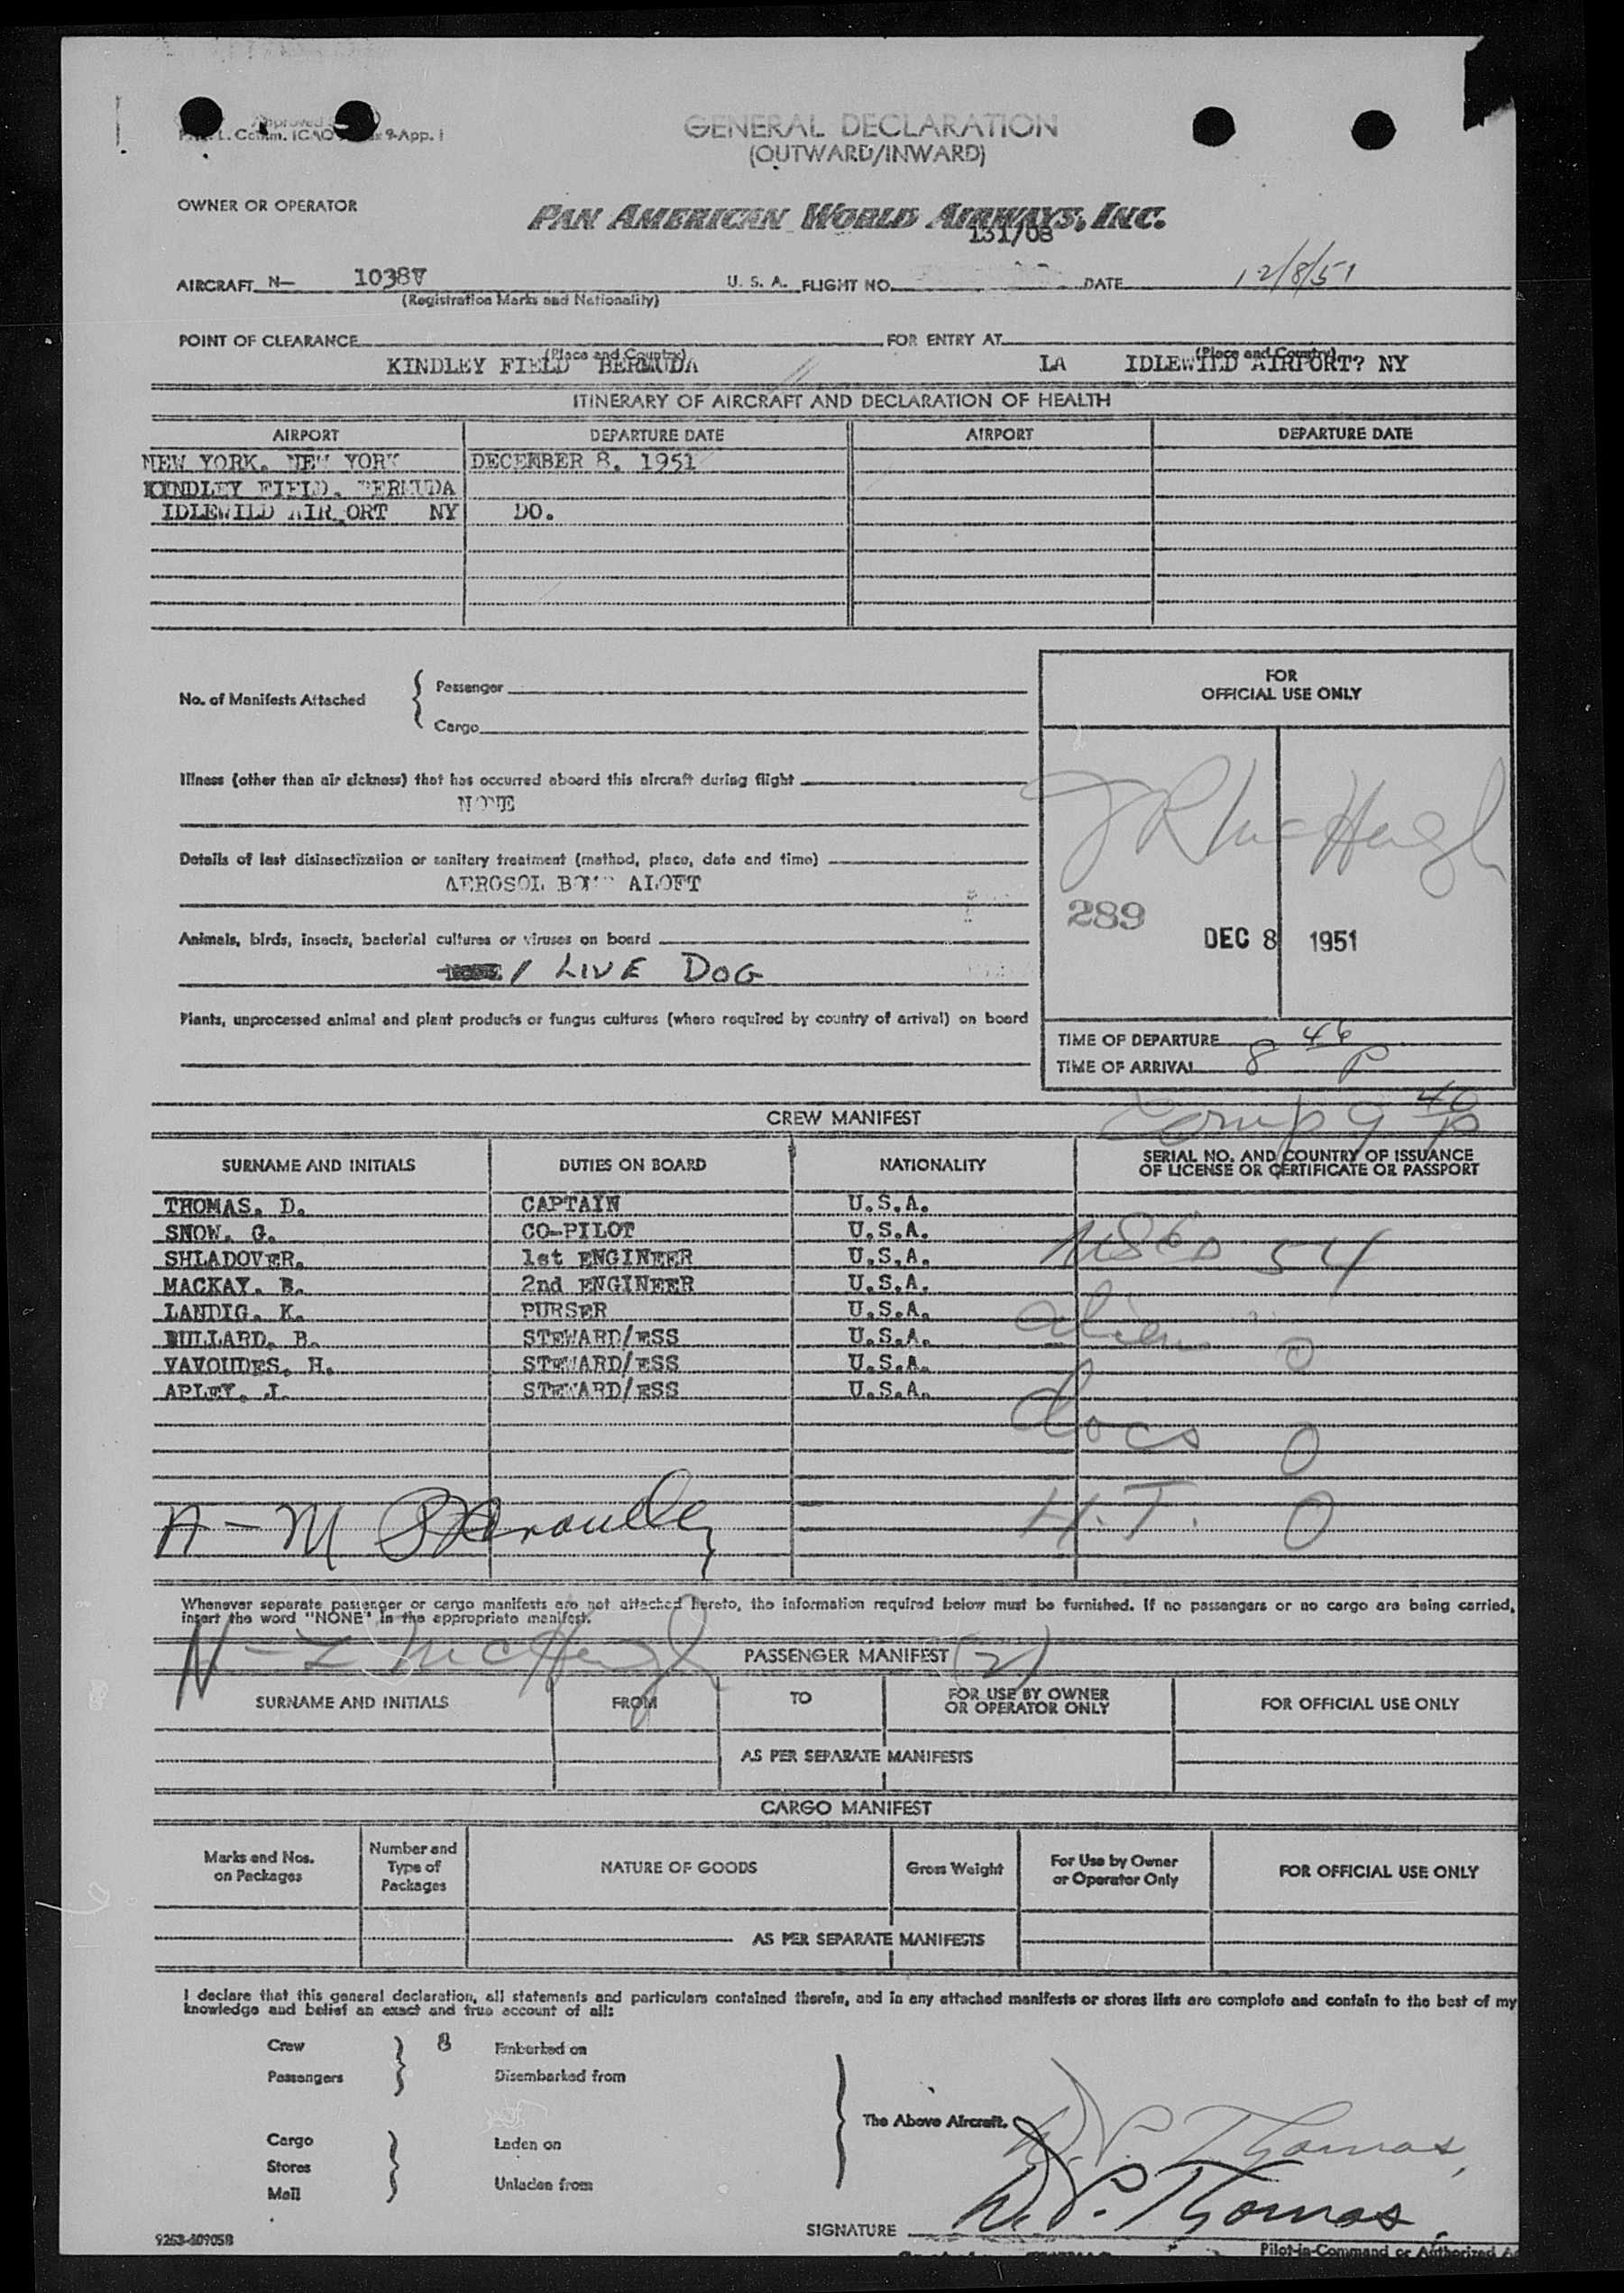 Approved
L. Comm. ICAO 9-App. I
GENERAL DECLARATION
(OUTWARD/INWARD)
OWNER OR OPERATOR
PAN AMERICAN WORLD AIRWAYS, INC.
131/08
AIRCRAFT N— 1038V U. S. A. FLIGHT NO. DATE 12/8/51
(Registration Marks and Nationality)
POINT OF CLEARANCE FOR ENTRY AT
(Place and Country) (Place and Country)
KINDLEY FIELD BERMUDA LA IDLEWILD AIRPORT? NY
ITINERARY OF AIRCRAFT AND DECLARATION OF HEALTH
AIRPORT DEPARTURE DATE AIRPORT DEPARTURE DATE
NEW YORK, NEW YORK DECEMBER 8, 1951
KINDLEY FIELD, BERMUDA
IDLEWILD AIRPORT NY DO.
FOR
OFFICIAL USE ONLY
No. of Manifests Attached
Passenger
Cargo
Illness (other than air sickness) that has occurred aboard this aircraft during flight
NONE
Details of last disinsectization or sanitary treatment (method, place, date and time)
AEROSOL BOMB ALOFT
J R McHugh
289
DEC 8 1951
Animals, birds, insects, bacterial cultures or viruses on board
1 LIVE DOG
Plants, unprocessed animal and plant products or fungus cultures (where required by country of arrival) on board
TIME OF DEPARTURE
TIME OF ARRIVAL 8 46 P
Comp 9 40 P
CREW MANIFEST
SURNAME AND INITIALS DUTIES ON BOARD NATIONALITY SERIAL NO. AND COUNTRY OF ISSUANCE
OF LICENSE OR CERTIFICATE OR PASSPORT
THOMAS, D. CAPTAIN U.S.A.
SNOW, G. CO-PILOT U.S.A.
SHLADOVER, 1st ENGINEER U.S.A.
MACKAY, B. 2nd ENGINEER U.S.A.
LANDIG, K. PURSER U.S.A.
BULLARD, B. STEWARD/ESS U.S.A.
VAVOUDES, H. STEWARD/ESS U.S.A.
APLEY, J. STEWARD/ESS U.S.A.
54
alien 0
docs 0
H.T. 0
A - M
Whenever separate passenger or cargo manifests are not attached hereto, the information required below must be furnished. If no passengers or no cargo are being carried,
insert the word "NONE" in the appropriate manifest.
N - Z McHugh
PASSENGER MANIFEST (2)
SURNAME AND INITIALS FROM TO FOR USE BY OWNER
OR OPERATOR ONLY FOR OFFICIAL USE ONLY
AS PER SEPARATE MANIFESTS
CARGO MANIFEST
Marks and Nos.
on Packages
Number and
Type of
Packages
NATURE OF GOODS
Gross Weight
For Use by Owner
or Operator Only
FOR OFFICIAL USE ONLY
AS PER SEPARATE MANIFESTS
I declare that this general declaration, all statements and particulars contained therein, and in any attached manifests or stores lists are complete and contain to the best of my
knowledge and belief an exact and true account of all:
Crew 8 Embarked on
Passengers Disembarked from
The Above Aircraft.
Cargo Laden on
Stores
Mail Unladen from
D. P. Thomas
D. P. Thomas
SIGNATURE
Pilot-in-Command or Authorized